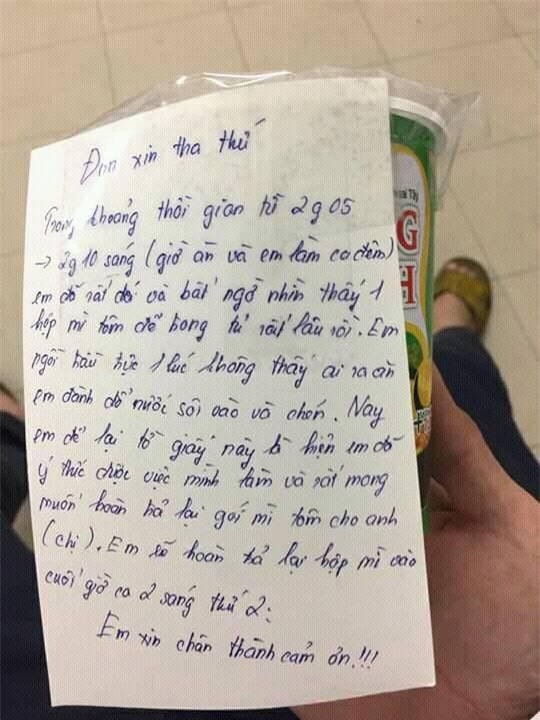 Đơn xin tha thứ
Trong khoảng thời gian từ 2g05
→ 2g10 sáng (giờ ăn và em làm ca đêm)
em đã rất đói và bất ngờ nhìn thấy 1
hộp mì tôm để trong tủ rất lâu rồi. Em
ngồi hầu hực 1 lúc không thấy ai ra ăn
em đành đổ nước sôi vào và chén. Nay
em để lại tờ giấy này là hiện em đã
ý thức được việc mình làm và rất mong
muốn hoàn trả lại gói mì tôm cho anh
(chị). Em sẽ hoàn trả lại hộp mì vào
cuối giờ ca 2 sáng thứ 2.
Em xin chân thành cảm ơn.!!!
G
H